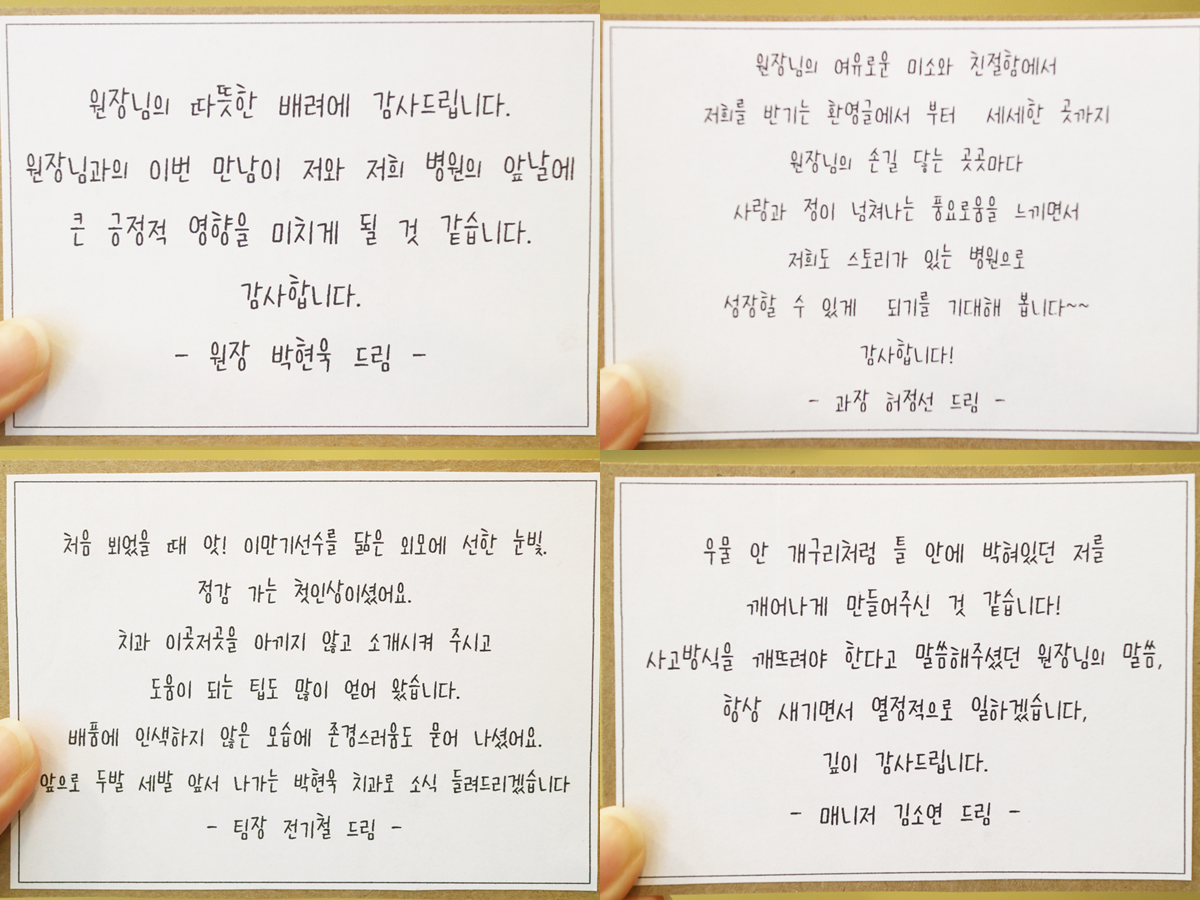 원장님의 따뜻한 배려에 감사드립니다.
원장님과의 이번 만남이 저와 저희 병원의 앞날에
큰 긍정적 영향을 미치게 될 것 같습니다.
감사합니다.
- 원장 박현욱 드림 -
원장님의 여유로운 미소와 친절함에서
저희를 반기는 환영글에서 부터 세세한 곳까지
원장님의 손길 닿는 곳곳마다
사랑과 정이 넘쳐나는 풍요로움을 느끼면서
저희도 스토리가 있는 병원으로
성장할 수 있게 되기를 기대해 봅니다~~
감사합니다!
- 과장 허정선 드림 -
처음 뵈었을 때 앗! 이만기선수를 닮은 외모에 선한 눈빛.
정감 가는 첫인상이셨어요.
치과 이곳저곳을 아끼지 않고 소개시켜 주시고
도움이 되는 팁도 많이 얻어 왔습니다.
배품에 인색하지 않은 모습에 존경스러움도 묻어 나셨어요.
앞으로 두발 세발 앞서 나가는 박현욱 치과로 소식 들려드리겠습니다
- 팀장 전기철 드림 -
우물 안 개구리처럼 틀 안에 박혀있던 저를
깨어나게 만들어주신 것 같습니다!
사고방식을 깨뜨려야 한다고 말씀해주셨던 원장님의 말씀,
항상 새기면서 열정적으로 일하겠습니다,
깊이 감사드립니다.
- 매니저 김소연 드림 -